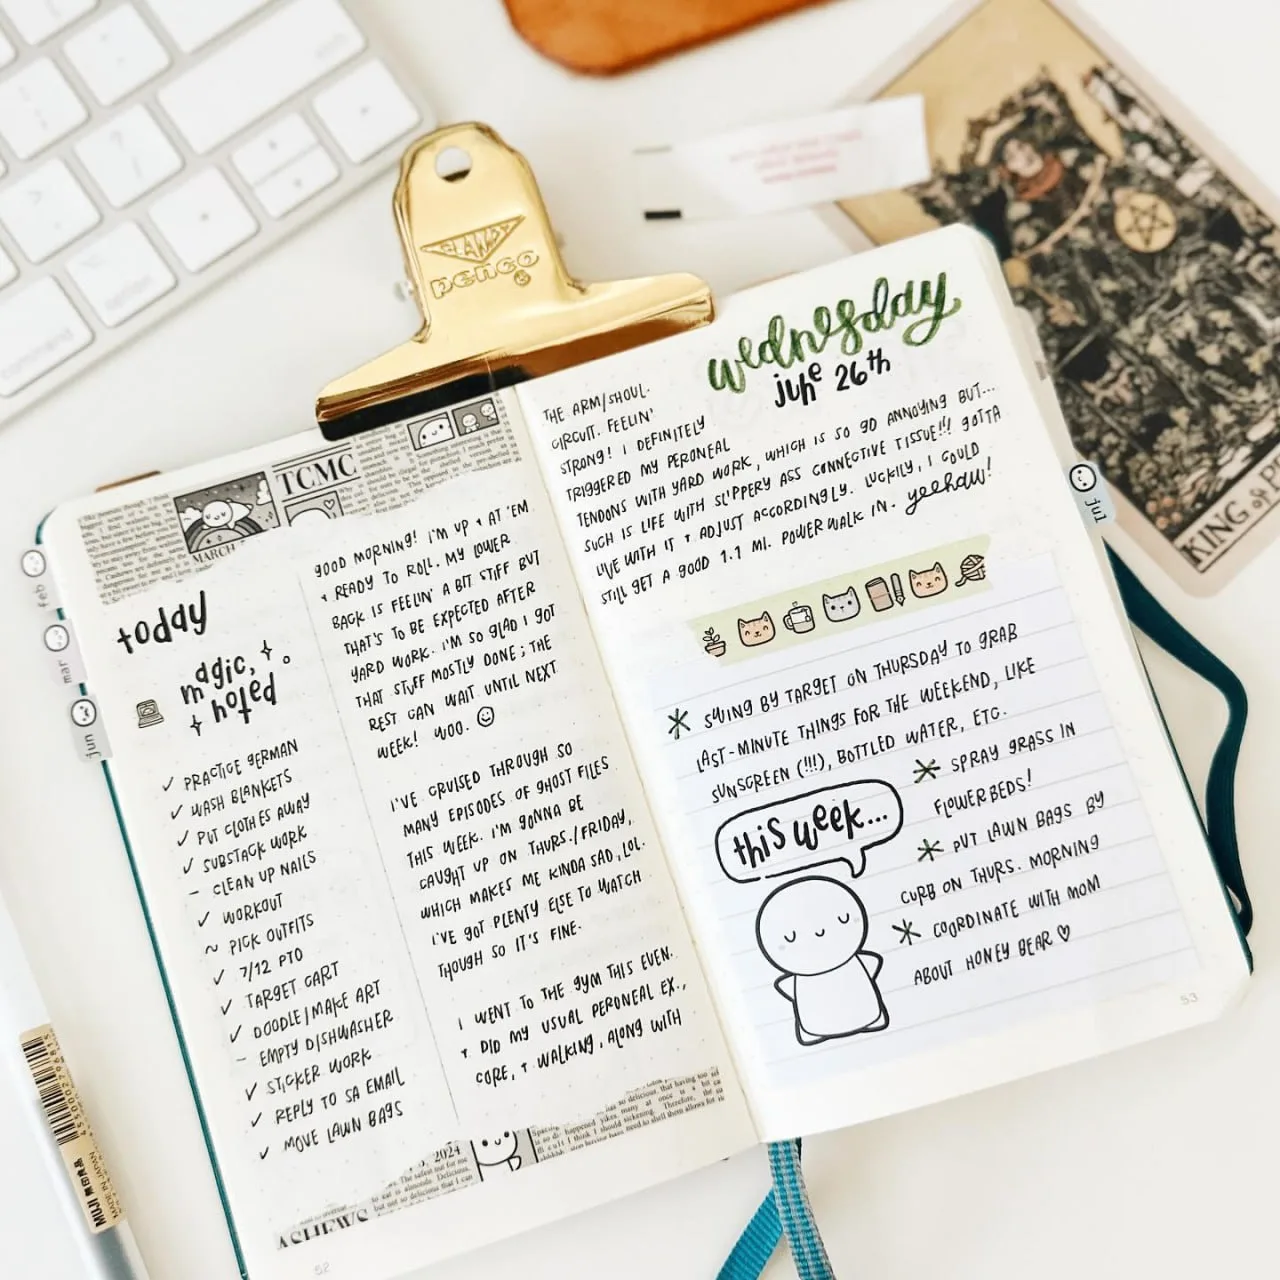 PENCO
TCMC
MARCH
today
magic,
+ noted
✓ PRACTICE GERMAN
✓ WASH BLANKETS
✓ PUT CLOTHES AWAY
✓ SUBSTACK WORK
– CLEAN UP NAILS
✓ WORKOUT
~ PICK OUTFITS
✓ 7/12 PTO
✓ TARGET CART
✓ DOODLE/MAKE ART
– EMPTY DISHWASHER
✓ STICKER WORK
✓ REPLY TO SA EMAIL
✓ MOVE LAWN BAGS
GOOD MORNING! I'M UP + AT 'EM
+ READY TO ROLL. MY LOWER
BACK IS FEELIN' A BIT STIFF BUT
THAT'S TO BE EXPECTED AFTER
YARD WORK. I'M SO GLAD I GOT
THAT STUFF MOSTLY DONE; THE
REST CAN WAIT UNTIL NEXT
WEEK! WOO. ☺
I'VE CRUISED THROUGH SO
MANY EPISODES OF GHOST FILES
THIS WEEK. I'M GONNA BE
CAUGHT UP ON THURS./FRIDAY,
WHICH MAKES ME KINDA SAD, LOL.
I'VE GOT PLENTY ELSE TO WATCH
THOUGH SO IT'S FINE.
I WENT TO THE GYM THIS EVEN.
+ DID MY USUAL PERONEAL EX.,
CORE, + WALKING, ALONG WITH
2024
52
wednesday
june 26th
THE ARM/SHOUL.
CIRCUIT. FEELIN'
STRONG! I DEFINITELY
TRIGGERED MY PERONEAL
TENDONS WITH YARD WORK, WHICH IS SO GD ANNOYING BUT...
SUCH IS LIFE WITH SLIPPERY ASS CONNECTIVE TISSUE!!! GOTTA
LIVE WITH IT + ADJUST ACCORDINGLY. LUCKILY, I COULD
STILL GET A GOOD 1.1 MI. POWER WALK IN. yeehaw!
* SWING BY TARGET ON THURSDAY TO GRAB
LAST-MINUTE THINGS FOR THE WEEKEND, LIKE
SUNSCREEN (!!!), BOTTLED WATER, ETC.
this week...
* SPRAY GRASS IN
FLOWERBEDS!
* PUT LAWN BAGS BY
CURB ON THURS. MORNING
* COORDINATE WITH MOM
ABOUT HONEY BEAR ♡
53
feb
mar
jun
jul
KING of P
MUJI 無印良品
MADE IN JAPAN
command
option